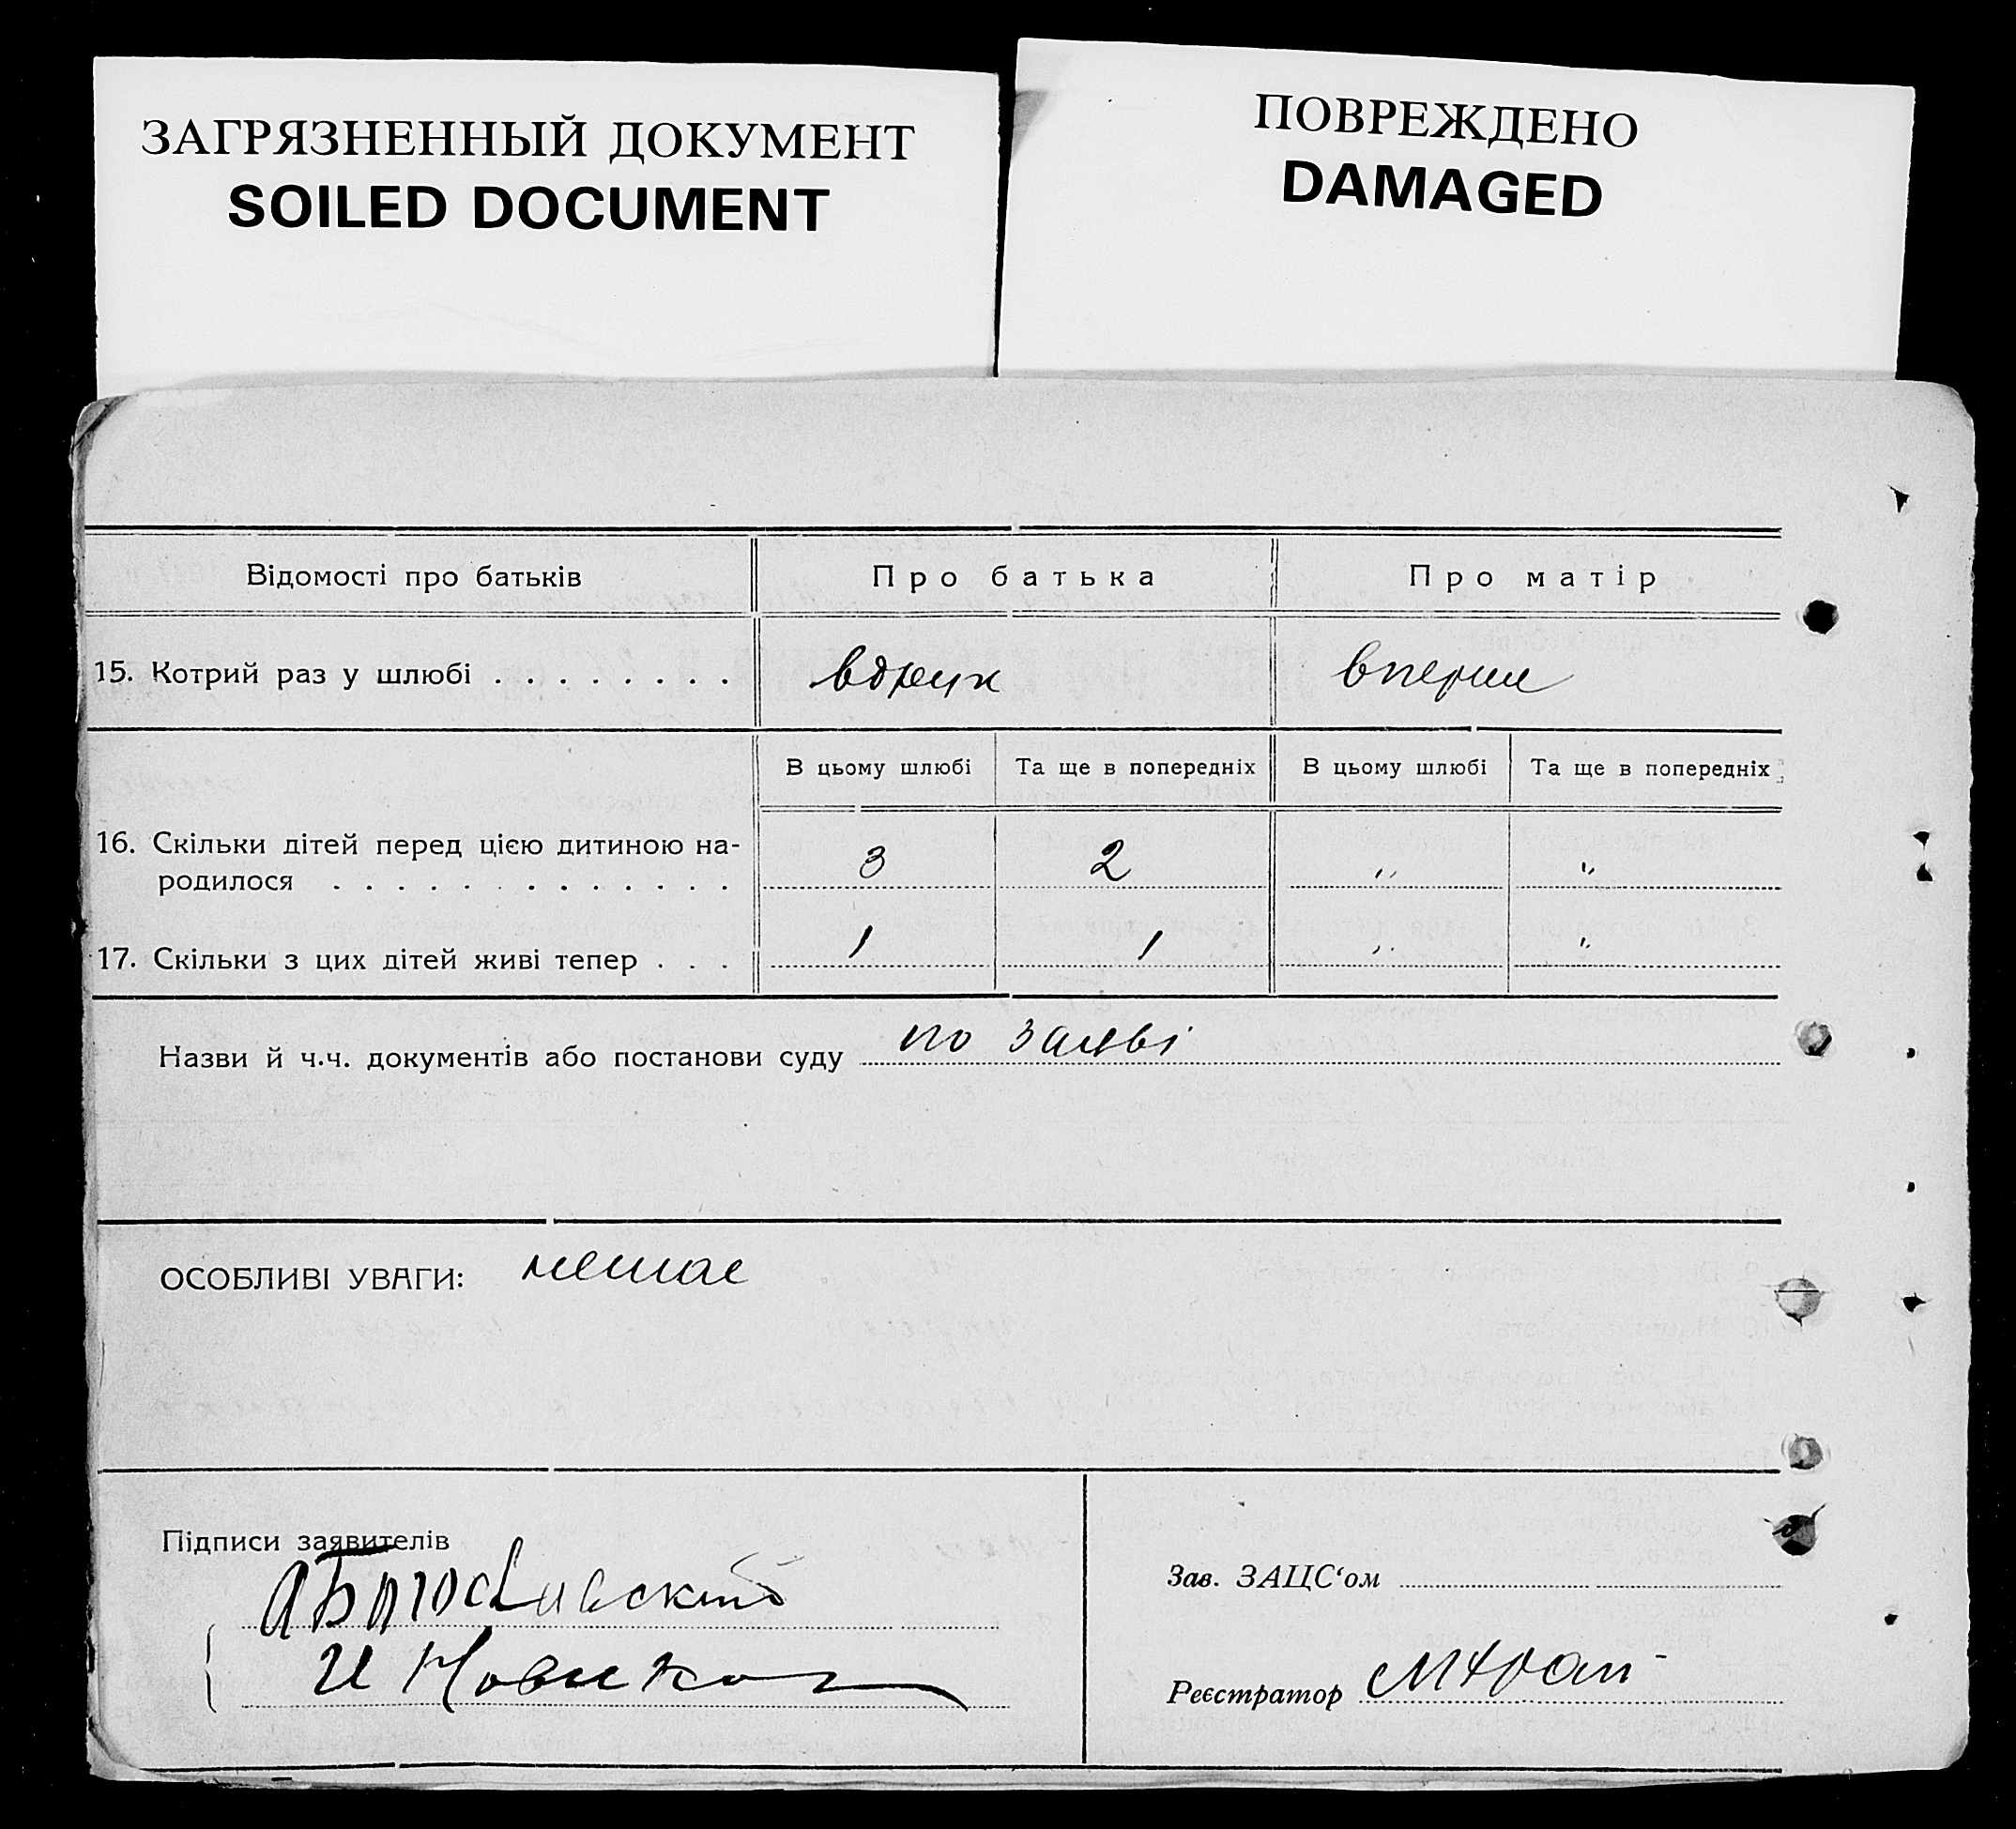 ЗАГРЯЗНЕННЫЙ ДОКУМЕНТ
SOILED DOCUMENT
ПОВРЕЖДЕНО
DAMAGED
Відомості про батьків Про батька Про матір
15. Котрий раз у шлюбі . . . . . . . . вдруге вперше
В цьому шлюбі Та ще в попередніх В цьому шлюбі Та ще в попередніх
16. Скільки дітей перед цією дитиною на-
родилося . . . . . . . . . . . . . 3 2 " "
17. Скільки з цих дітей живі тепер . . . 1 1 " "
Назви й ч.ч. документів або постанови суду по заяві
ОСОБЛИВІ УВАГИ: немає
Підписи заявителів
Зав. ЗАЦС‘ом
И Новиков
Реєстратор